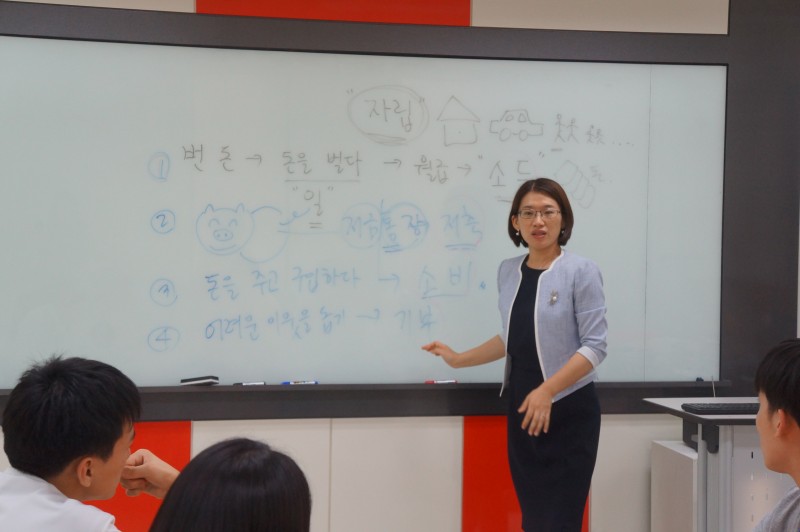 "자립"
① 번 돈 → 돈을 벌다 → 월급 → "소득"
"일"
② 저금통장 저축
③ 돈을 주고 구입하다 → 소비.
④ 어려운 이웃을 돕기 → 기부